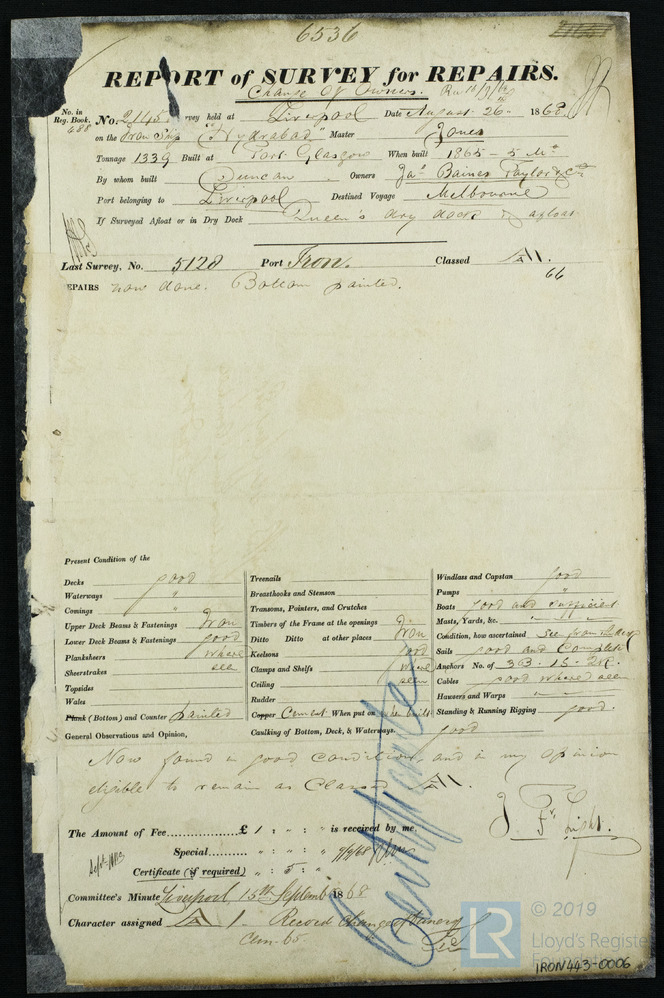 6536
REPORT of SURVEY for REPAIRS.
Change of Owners.
No. in Reg. Book. 688 No. 21145 rvey held at Liverpool Date August 26 1868
on the Iron Ship "Hydrabad" Master Jones
Tonnage 1339 Built at Port Glasgow When built 1865 - 5 Mo
By whom built Duncan Owners Jas Baines Taylor & Co
Port belonging to Liverpool Destined Voyage Melbourne
If Surveyed Afloat or in Dry Dock Queen's dry dock & afloat
Last Survey, No. 5128 Port Iron. Classed A1.
66
EPAIRS now done. Bottom painted.
Present Condition of the
Decks good
Waterways "
Comings "
Upper Deck Beams & Fastenings Iron
Lower Deck Beams & Fastenings good
Planksheers where
Sheerstrakes seen
Topsides
Wales
Plank (Bottom) and Counter painted
General Observations and Opinion,
Treenails
Breasthooks and Stemson
Transoms, Pointers, and Crutches
Timbers of the Frame at the openings
Ditto Ditto at other places Iron
Keelsons good
Clamps and Shelfs where
Ceiling seen
Rudder
Copper Cement When put on when built
Caulking of Bottom, Deck, & Waterways. good
Windlass and Capstan good
Pumps "
Boats good and sufficient
Masts, Yards, &c.
Condition, how ascertained See from the deck
Sails good and Complete
Anchors No. of 3B. 1S. 2K.
Cables good where seen
Hawsers and Warps
Standing & Running Rigging good.
Now found in good condition, and in my opinion
eligible to remain as Classed A1.
The Amount of Fee £ 1 : " : " is received by me,
Special " : " : "
Certificate (if required) " : 5 : "
Committee's Minute Liverpool 15th Septemb 1868
Character assigned A 1. Record Change of Owners
Cem. 65.
Certificate
© 2019
LR
Lloyd's Registe
IRON443-0006